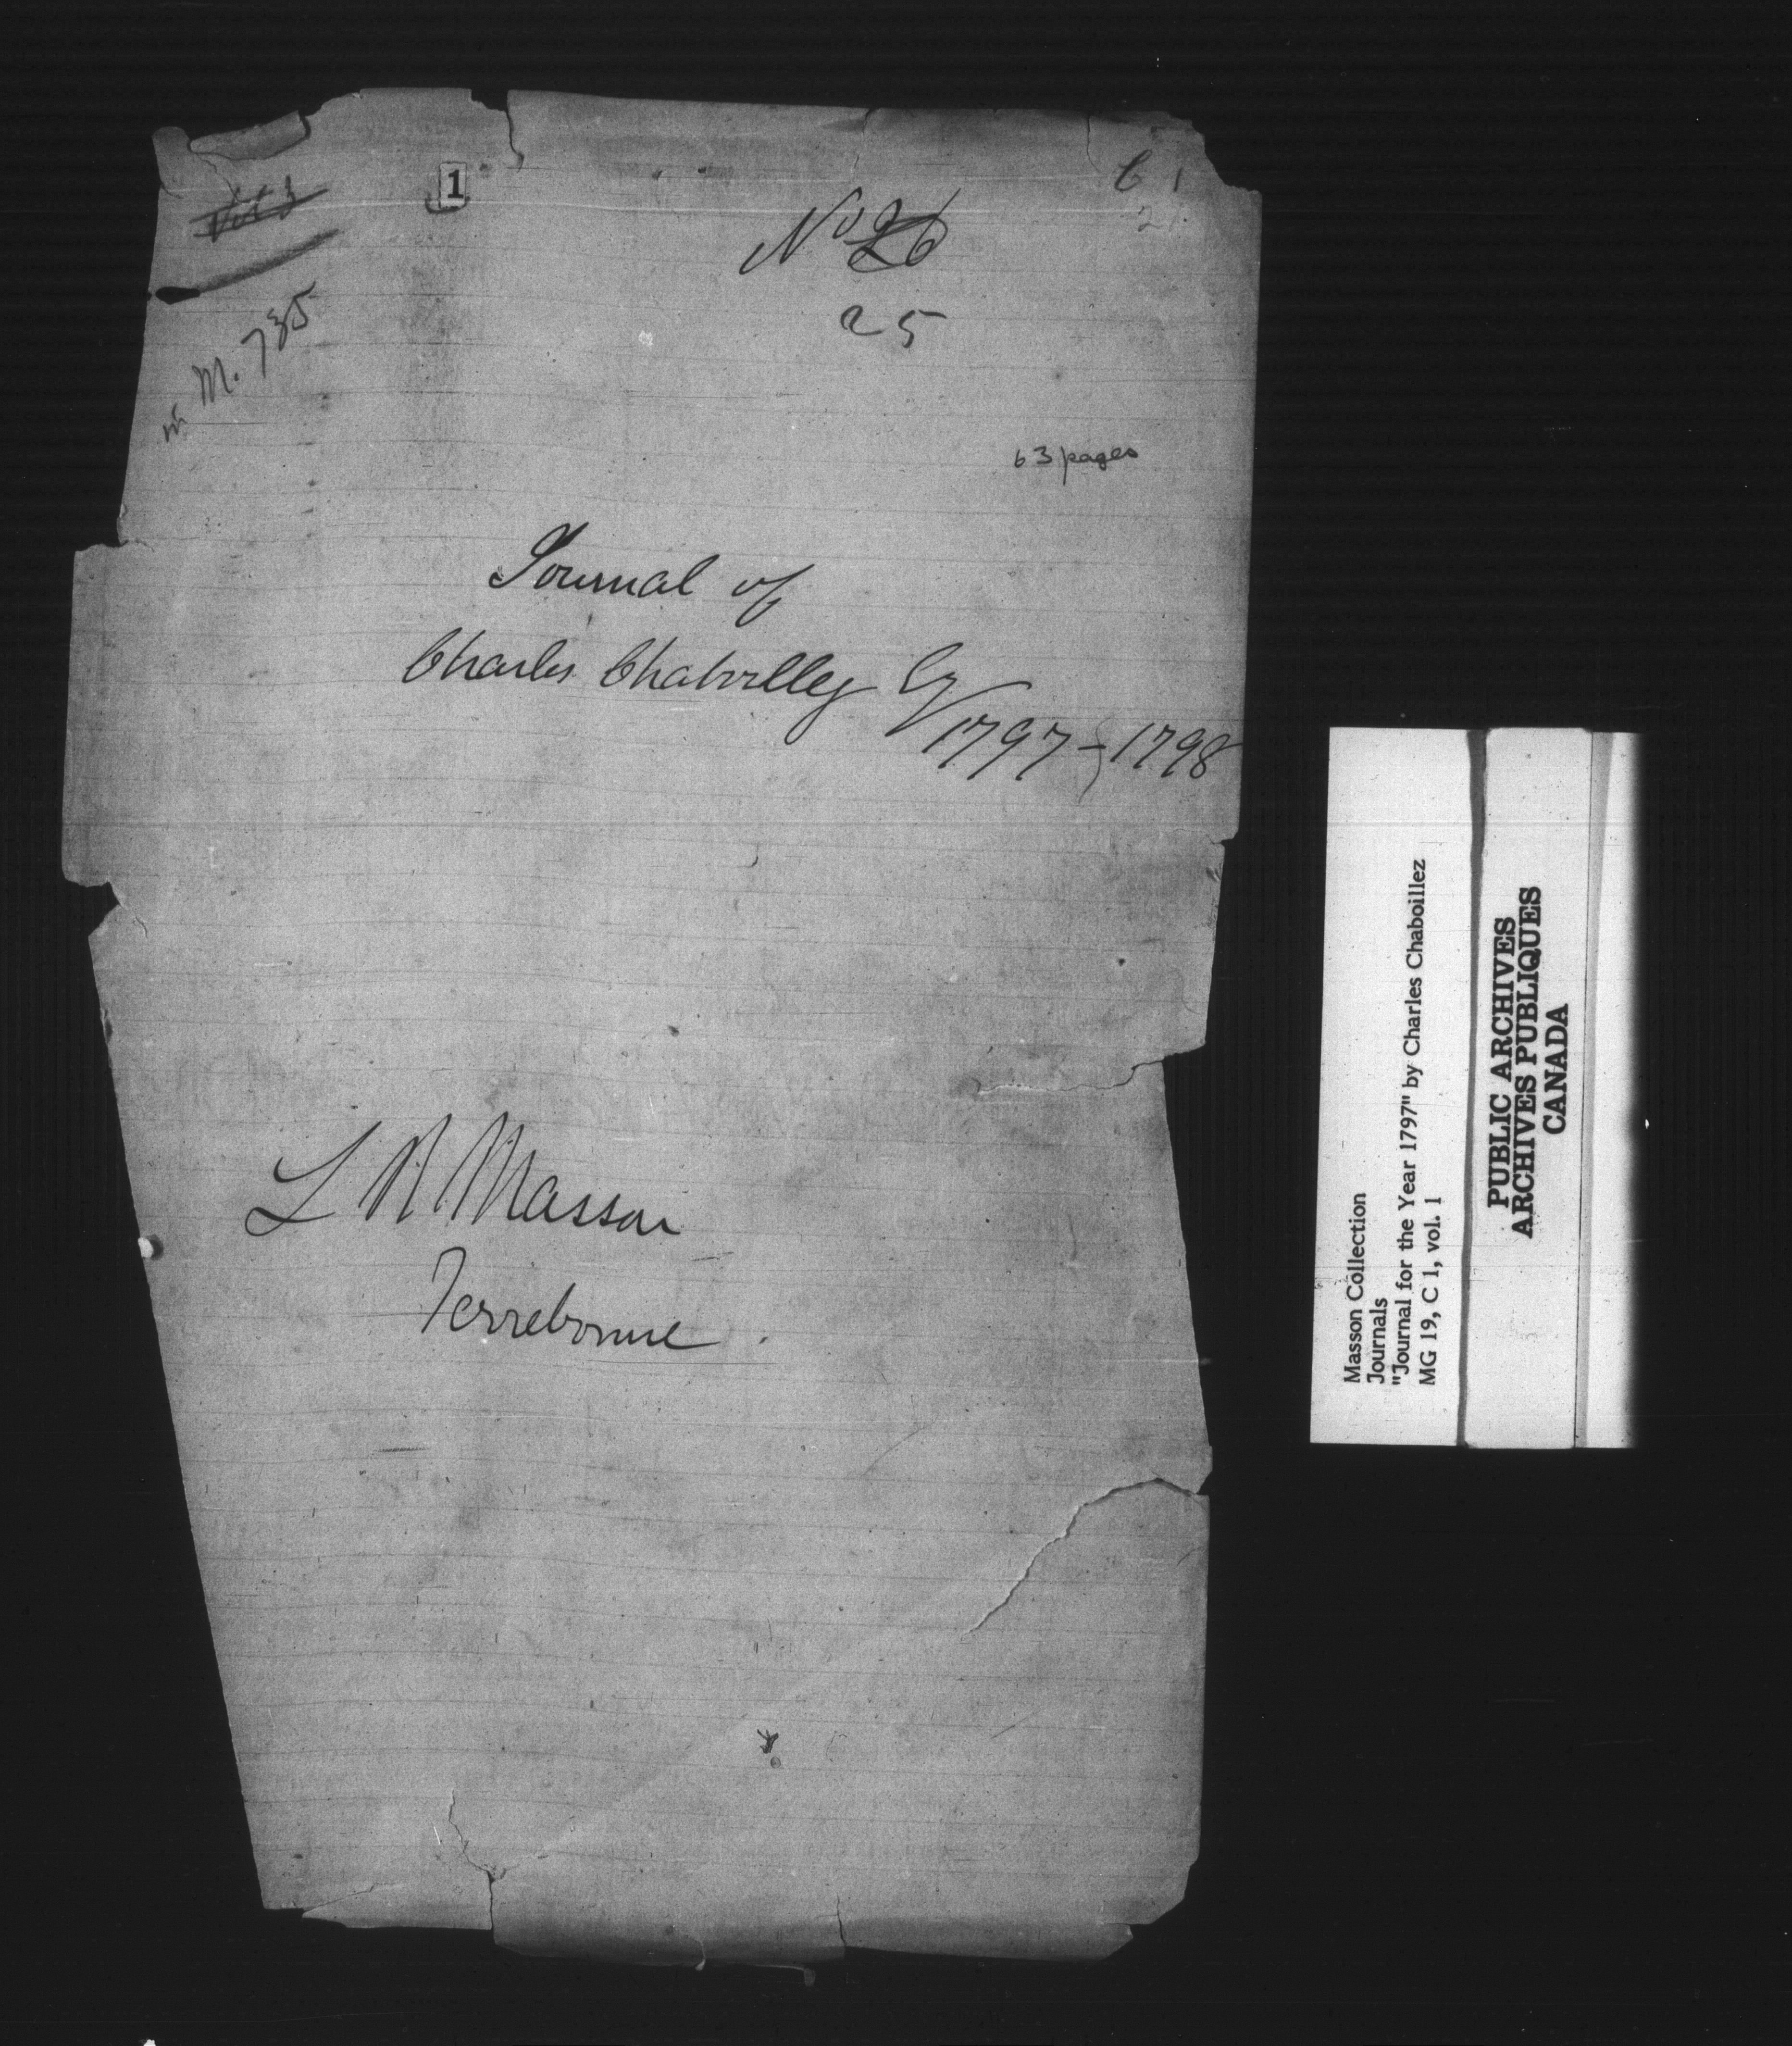 Vol 3
1
C 1
21
No 26
25
in M. 735
63 pages
Journal of
Charles Chaboillez Esq
1797-1798
L R Masson
Terrebonne.
Masson Collection
Journals
"Journal for the Year 1797" by Charles Chaboillez
MG 19, C 1, vol. 1
PUBLIC ARCHIVES
ARCHIVES PUBLIQUES
CANADA